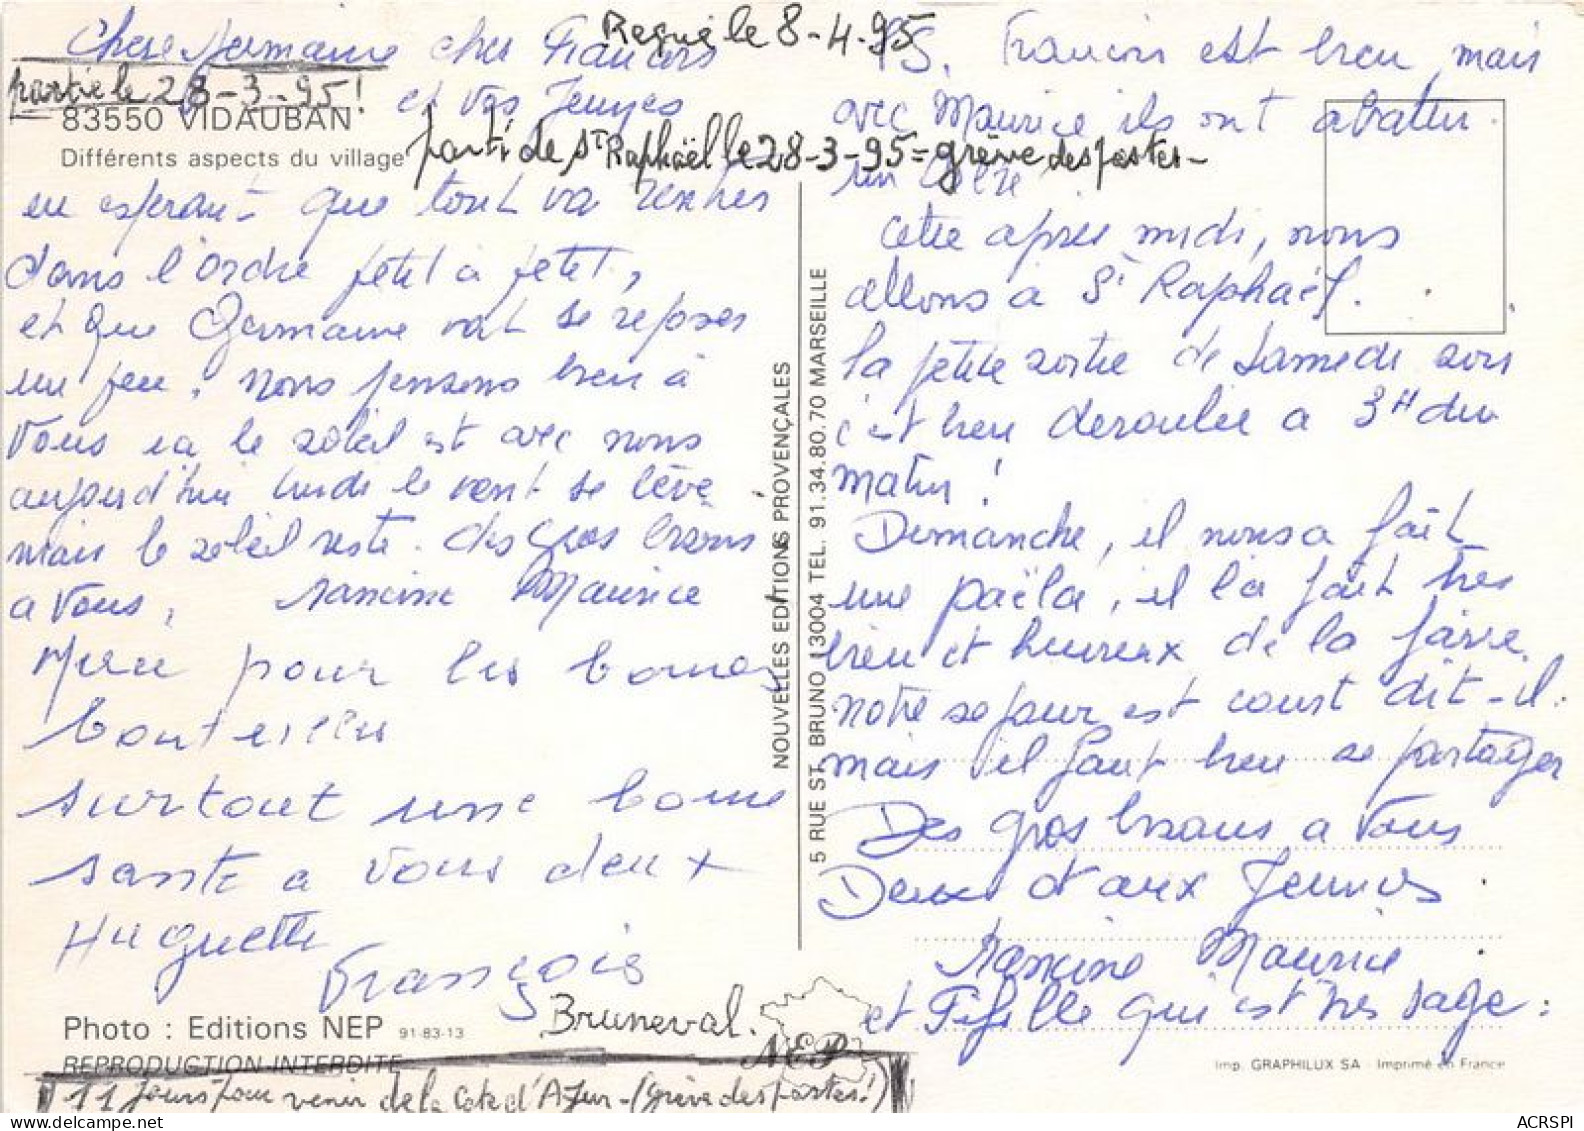 Reçue le 8-4-95
Chere Germaine cher Francois
partie le 28-3-95!
et vos Jeunes
83550 VIDAUBAN
Différents aspects du village
parti de St Raphaël le 28-3-95 = grève des postes-
en esperant que tout va rentrer
dans l'ordre petit a petit,
et que Germaine vat se reposer
un peu. nous pensons bien à
Vous ia le soleil est avec nous
aujourd'hui lundi le vent se lève
mais le soleil reste. des gros bisous
a Vous, Francine Maurice
Merci pour les bonnes
bouteilles
surtout une bonne
sante a vous deux
Huguette
François
Bruneval.
Photo : Editions NEP 91-83-13
REPRODUCTION INTERDITE
11 jours pour venir de la Cote d'Azur-(grève des postes!)
NOUVELLES EDITIONS PROVENÇALES
5 RUE ST. BRUNO 13004 TEL. 91.34.80.70 MARSEILLE
NEP
P.S. Francois est bien mais
avec Maurice ils ont abattu
un
Cette après midi, nous
allons a St Raphaël.
la petite sortie de Samedi soir
c'est bien deroulée a 3H du
matin!
Dimanche, il nous a fait
une paëla, il la fait tres
bien et heureux de la faire.
notre sejour est court dit-il.
mais il faut bien se partager
Des gros bisous a Vous
Deux et aux Jeunes.
Francine Maurice
et Fifille qui est tres sage:
Imp. GRAPHILUX SA - Imprimé en France
ACRSPI